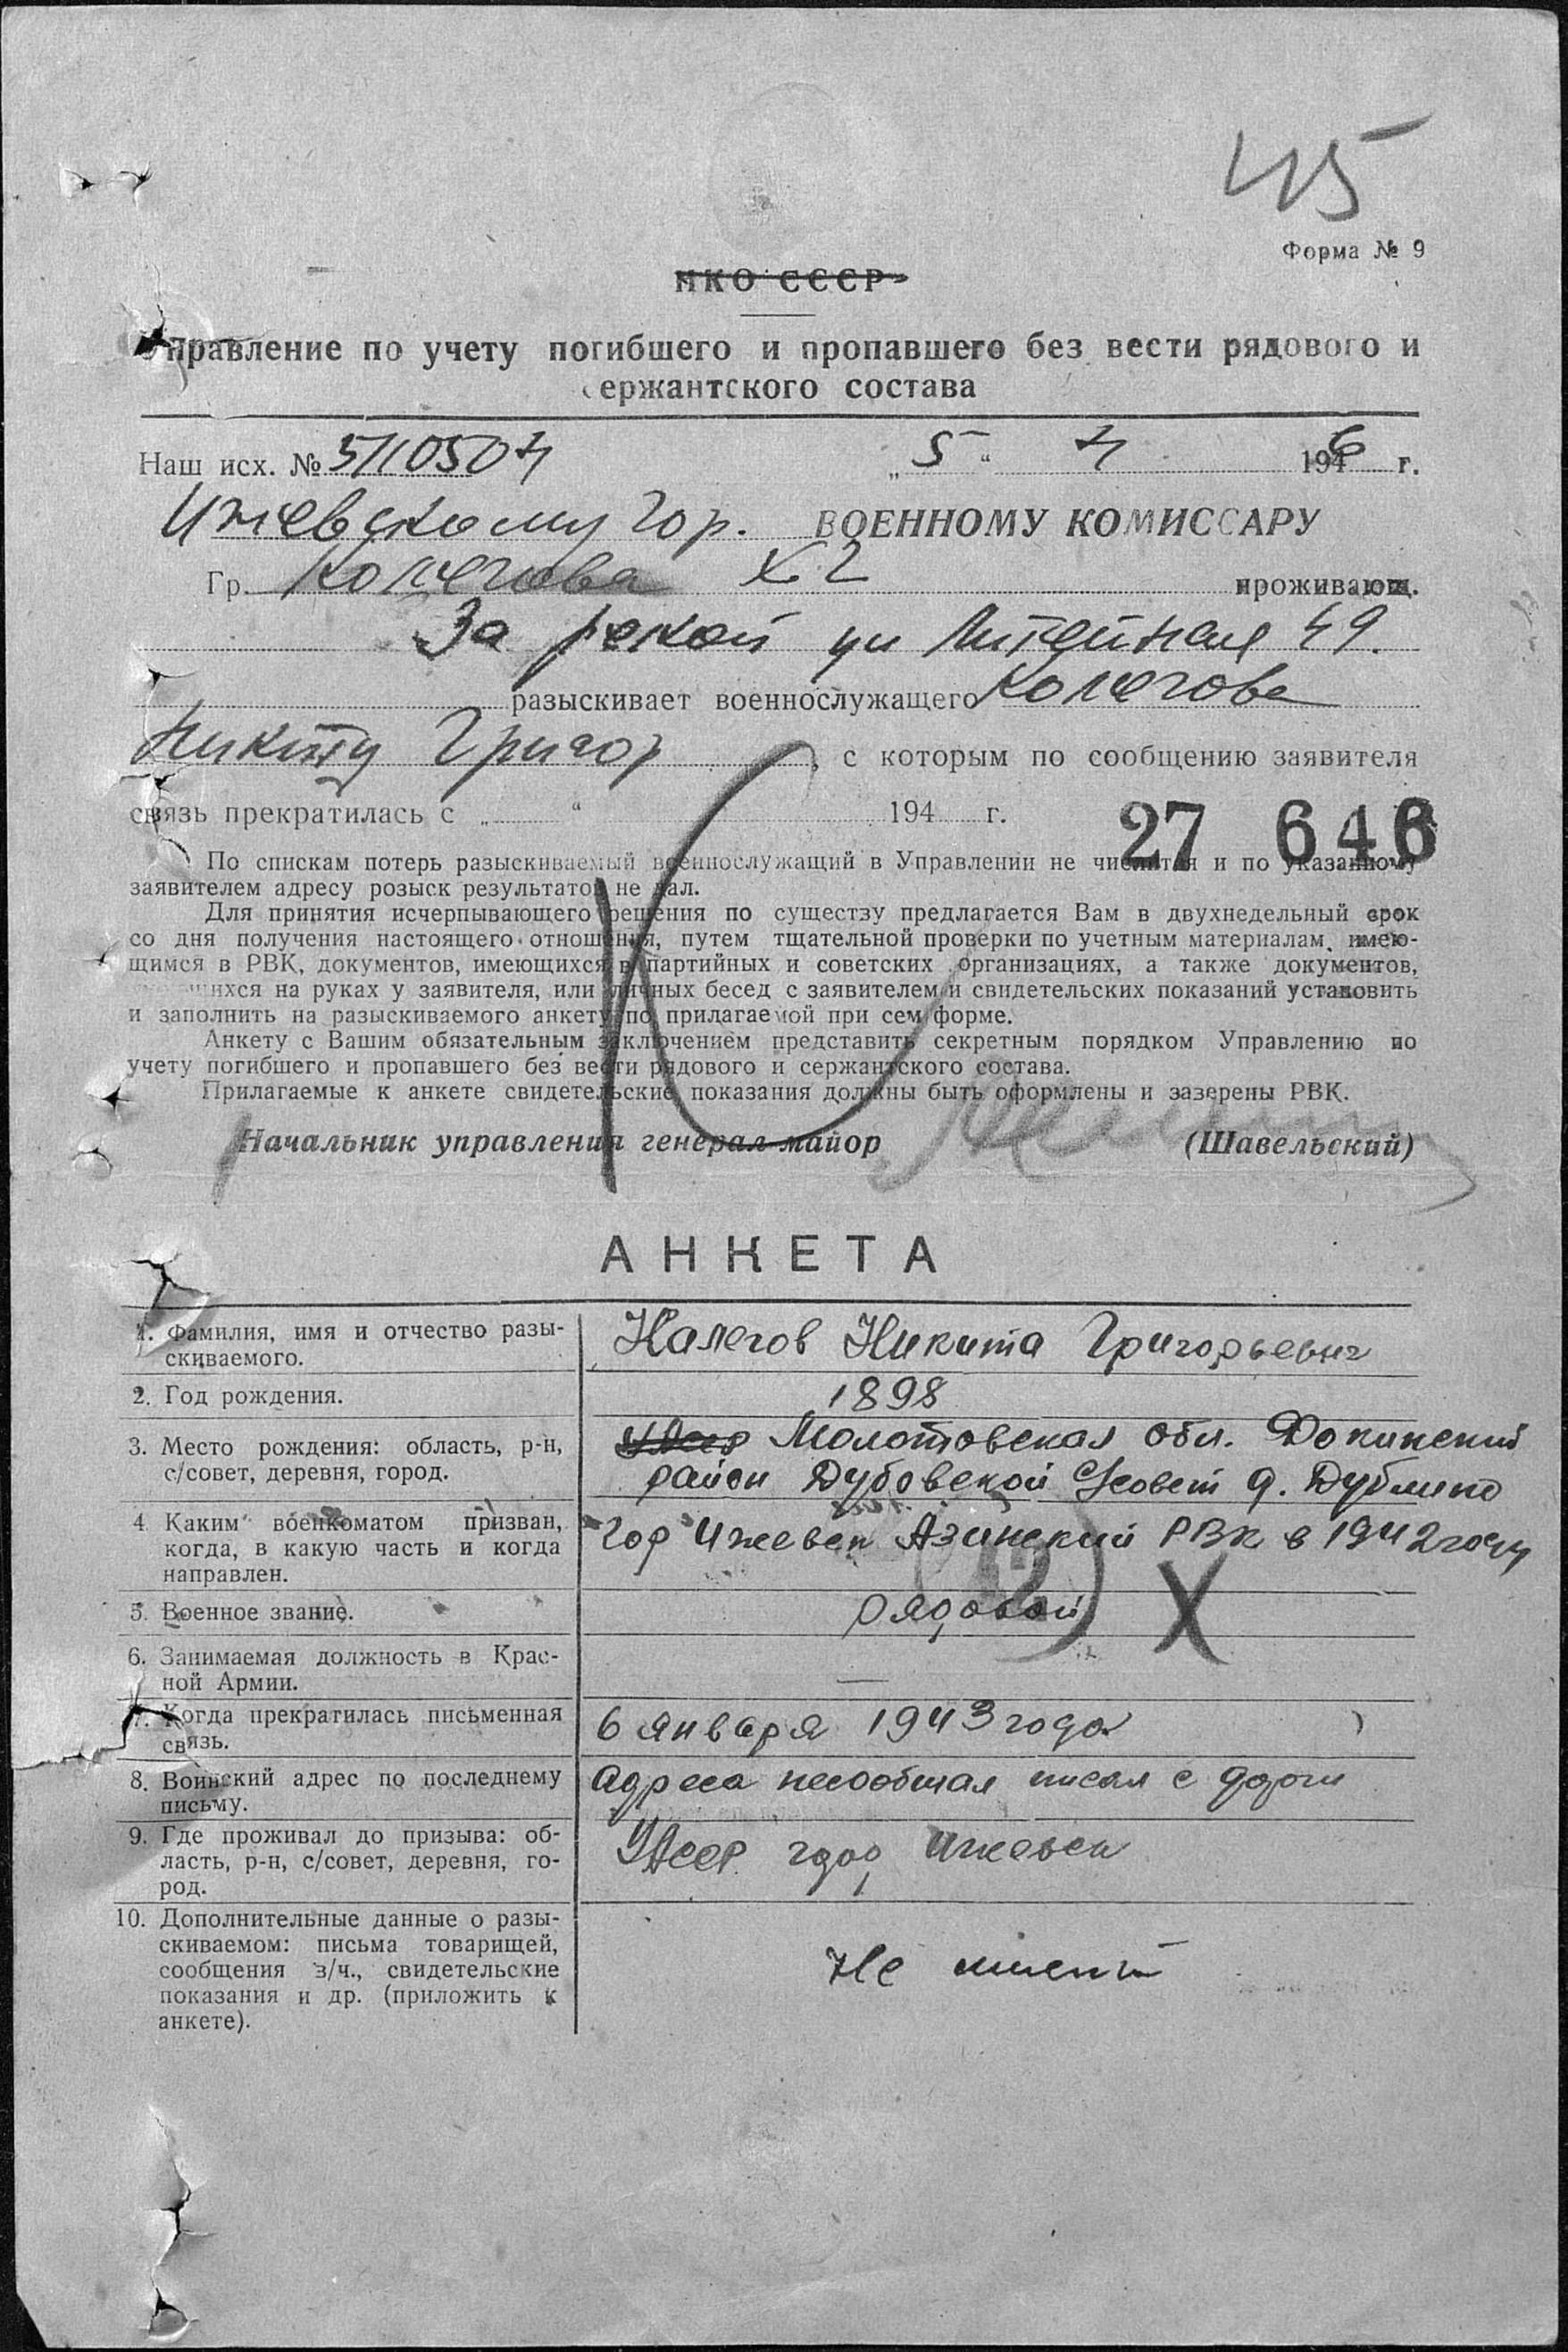 415
Форма № 9
НКО СССР
Управление по учету погибшего и пропавшего без вести рядового и
сержантского состава
Наш исх. № 5/10504 „5“ 4 1946 г.
Ижевскому гор. ВОЕННОМУ КОМИССАРУ
Гр. проживающ.
За рекой ул Литейная 49.
разыскивает военнослужащего
Никиту Григор , с которым по сообщению заявителя
связь прекратилась с „ “ 194 г.
27 646
По спискам потерь разыскиваемый военнослужащий в Управлении не числится и по указанному
заявителем адресу розыск результатов не дал.
Для принятия исчерпывающего решения по существу предлагается Вам в двухнедельный срок
со дня получения настоящего отношения, путем тщательной проверки по учетным материалам, имею-
щимся в РВК, документов, имеющихся в партийных и советских организациях, а также документов,
имеющихся на руках у заявителя, или личных бесед с заявителем и свидетельских показаний установить
и заполнить на разыскиваемого анкету по прилагаемой при сем форме.
Анкету с Вашим обязательным заключением представить секретным порядком Управлению по
учету погибшего и пропавшего без вести рядового и сержантского состава.
Прилагаемые к анкете свидетельские показания должны быть оформлены и заверены РВК.
Начальник управления генерал-майор (Шавельский)
АНКЕТА
1. Фамилия, имя и отчество разы-
скиваемого.
Калегов Никита Григорьевич
2. Год рождения.
1898
3. Место рождения: область, р-н,
с/совет, деревня, город.
УАССР Молотовская обл. Фокинский
район Дубовской С/совет д.
4. Каким военкоматом призван,
когда, в какую часть и когда
направлен.
гор Ижевск Азинский РВК в 1942 году
5. Военное звание.
рядовой
6. Занимаемая должность в Крас-
ной Армии.
—
7. Когда прекратилась письменная
связь.
6 января 1943 года
8. Воинский адрес по последнему
письму.
Адреса несообщал писал с дороги
9. Где проживал до призыва: об-
ласть, р-н, с/совет, деревня, го-
род.
УАССР город Ижевск
10. Дополнительные данные о разы-
скиваемом: письма товарищей,
сообщения в/ч., свидетельские
показания и др. (приложить к
анкете).
Не имеит